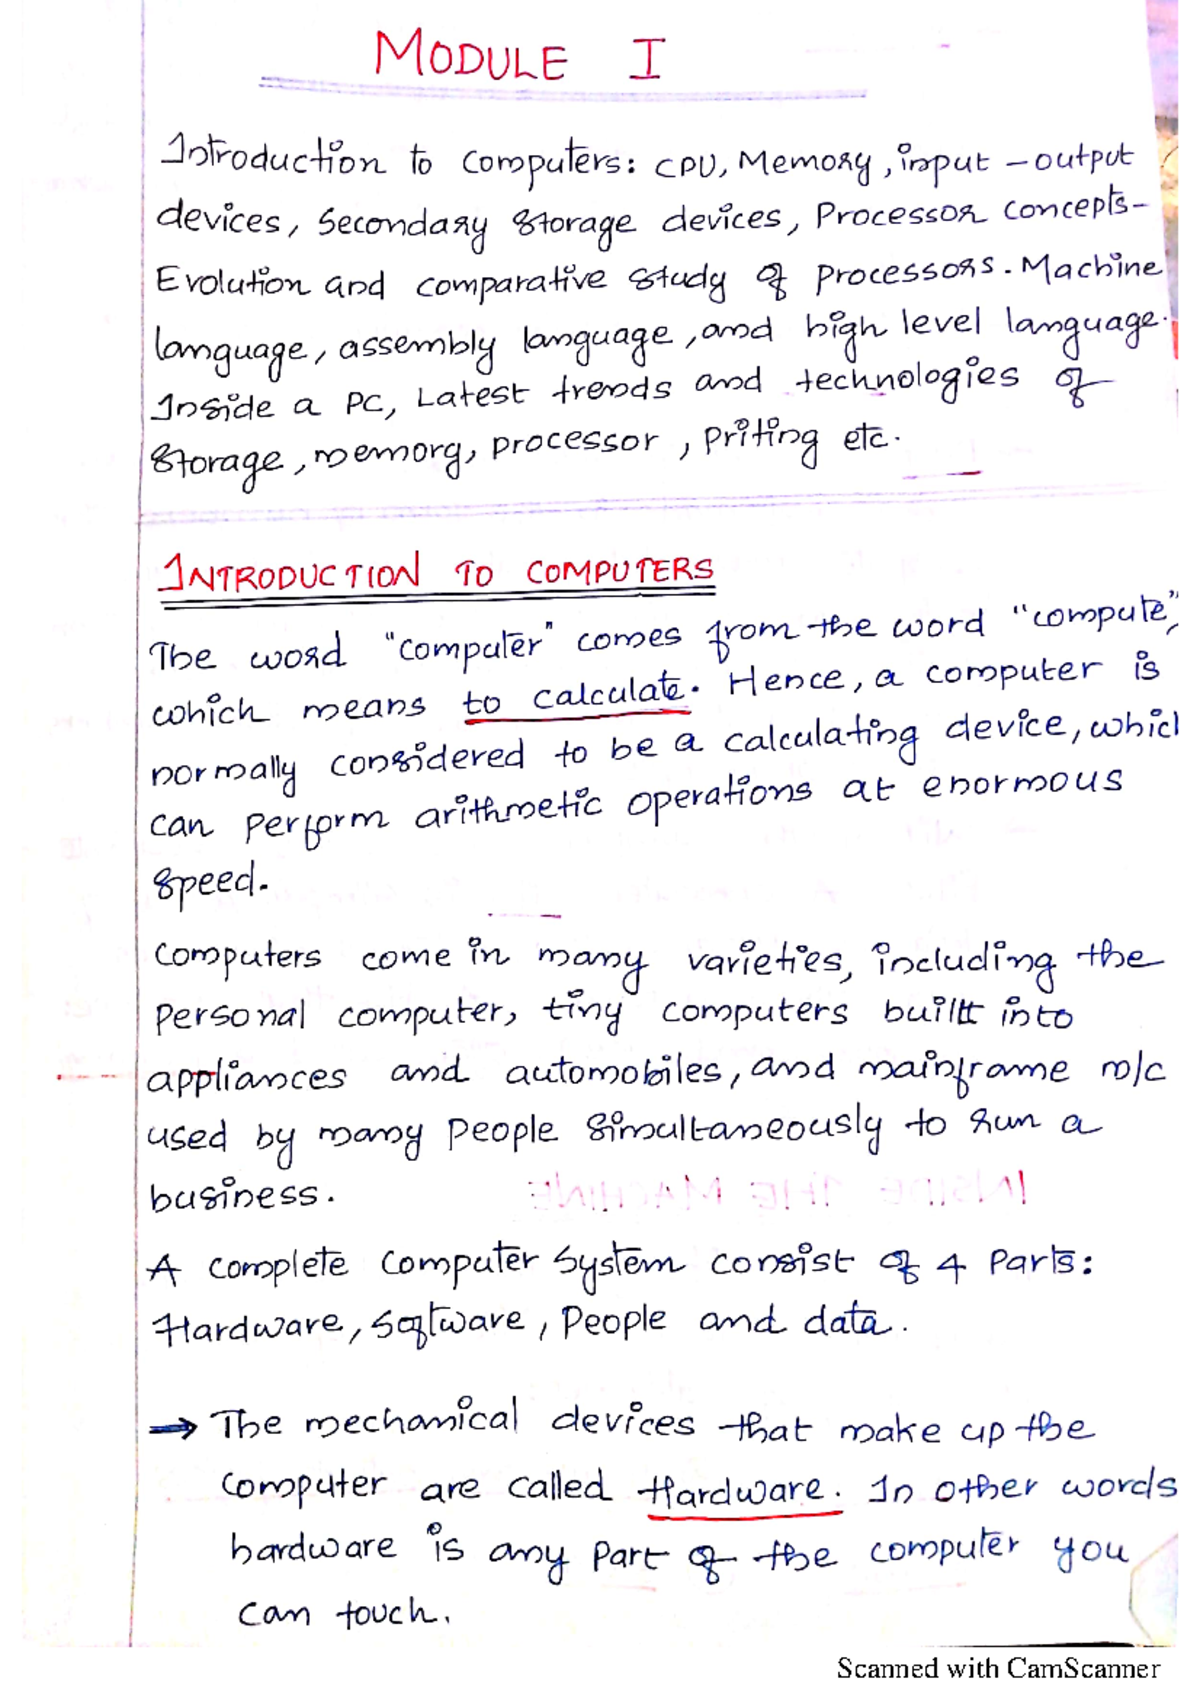 MODULE I
Introduction to computers: CPU, Memory, input - output
devices, Secondary storage devices, Processor concepts-
Evolution and comparative study of processors. Machine
language, assembly language, and high level language.
Inside a PC, Latest trends and technologies of
storage, memorg, processor, priting etc.
INTRODUCTION TO COMPUTERS
The word "computer" comes from the word "compute",
which means to calculate. Hence, a computer is
normally considered to be a calculating device, which
can perform arithmetic operations at enormous
speed.
Computers come in many varieties, including the
Personal computer, tiny computers builtt into
appliances and automobiles, and mainframe m/c
used by many people simultaneously to run a
INSIDE THE MACHINE
business.
A complete computer System consist of 4 Parts:
Hardware, Software, People and data.
→ The mechanical devices that make up the
Computer are called Hardware. In other words
hardware is any part of the computer you
can touch.
Scanned with CamScanner